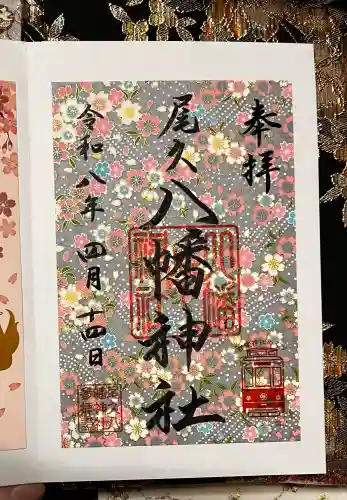 奉拝
尾久
八幡神社
令和八年四月十四日